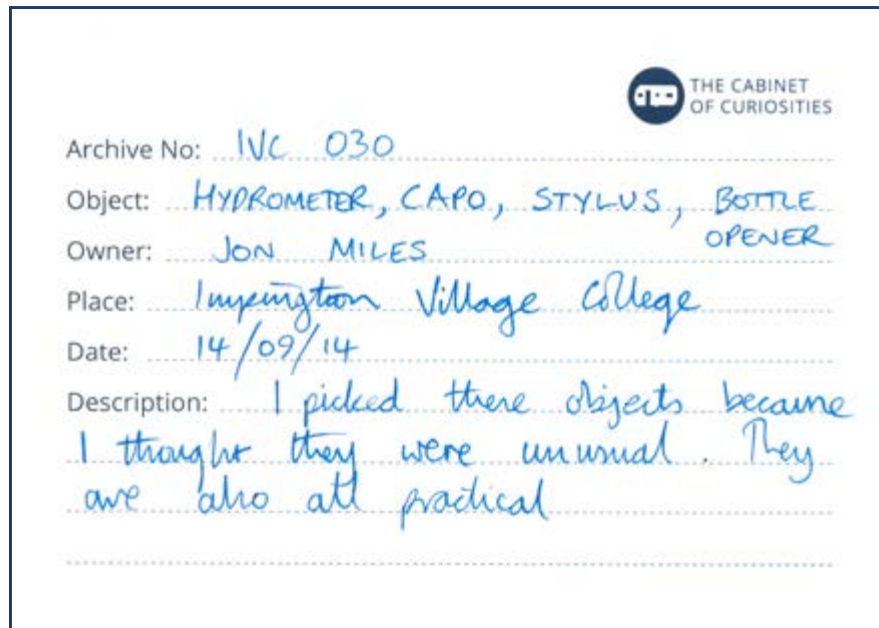 THE CABINET
OF CURIOSITIES
Archive No: IVC 030
Object: HYDROMETER, CAPO, STYLUS, BOTTLE
OPENER
Owner: JON MILES
Place: Impington Village College
Date: 14/09/14
Description: I picked these objects because
I thought they were unusual. They
are also all practical